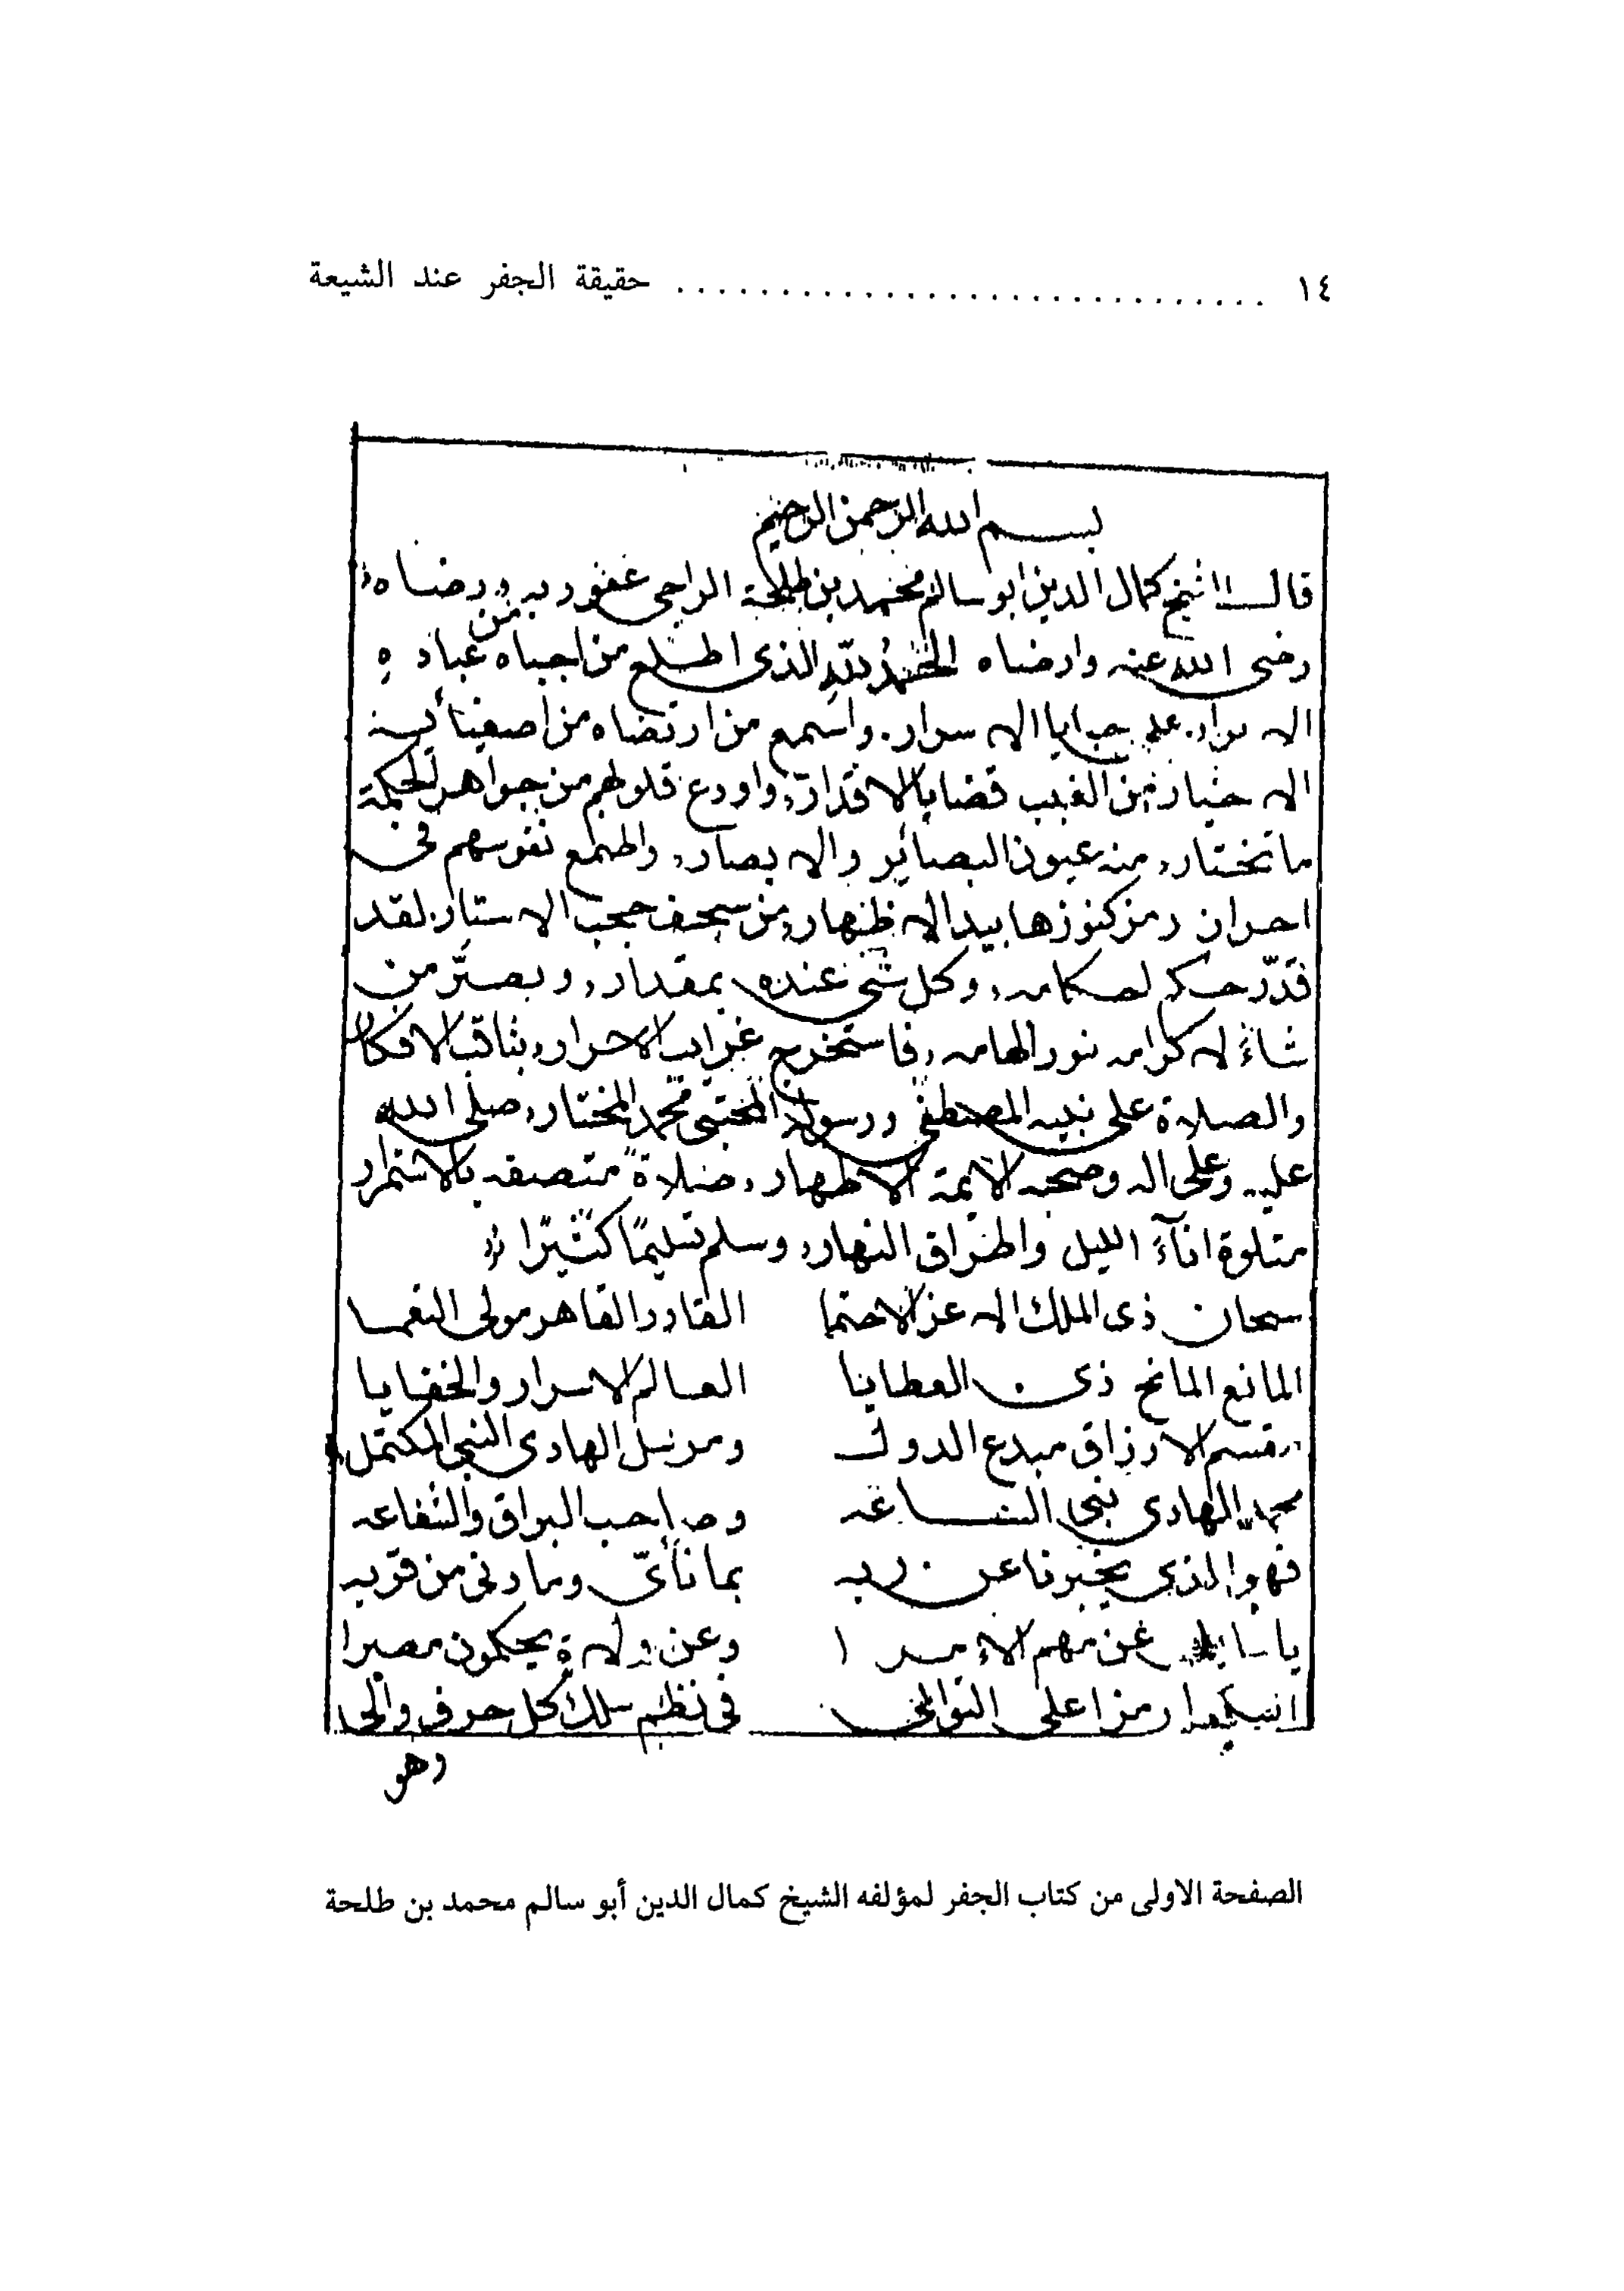 ١٤ ............................ حقيقة الجفر عند الشيعة
بسم الله الرحمن الرحيم
قال الشيخ كمال الدين ابو سالم محمد بن طلحة الراجى عفو ربه ورضاه
رضى الله عنه وارضاه الحمد لله الذى اطلع من اجتباه من عباده
الابرار على خبايا الاسرار. واسمع من ارتضاه من اصفيائه
الاخيار من الغيب قضايا الاقدار، واودع قلوبهم من جواهر الحكمة
ما تختار، منه عيون البصائر والابصار، واطمع نفوسهم فى
احراز رمز كنوزها بيد الاظهار، من سجف حجب الاستار. لقد
قدّر حكم احكامه، وكل شى عنده بمقدار، وبصّر من
شاءَ له كرامه نور الهامه، فاستخرج غرايب الاحرار، بثاقب الافكار
والصلاة على نبيه المصطفى ورسوله المجتبى محمد المختار، صلى الله
عليه وعلى اله وصحبه الايمة الاطهار، صلاةً متصفه بالاستمرار
متلوة اناءَ الليل واطراق النهار، وسلم تسليمًا كثيرًا
سبحان ذى الملك الاعز الاحتما القادر القاهر مولى النعما
المانع المانح ذى العطايا العالم الاسرار والخفايا
مقسم الارزاق مبدع الدول ومرسل الهادى النبى المكتمل
محمد الهادى نبى الساعه وصاحب البراق والشفاعه
فهو الذى يخبرنا عن ربه بما نأىّ وما دنى من قربه
يا سايلا عن مهم الامرا وعن ولاة يحكمون مصرا
رمزا على التوالى فى نظم سلك كل حرف والى
وهو
الصفحة الاولى من كتاب الجفر لمؤلفه الشيخ كمال الدين أبو سالم محمد بن طلحة